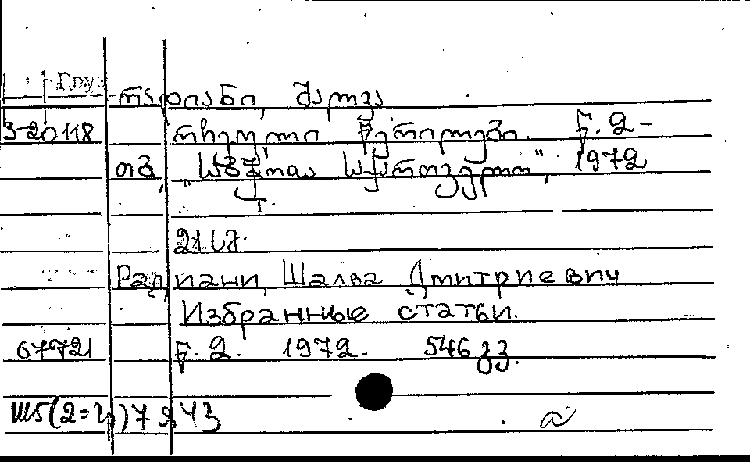 Груз
რადიანი, შალვა
3-20118 რჩეული წერილები. წ. 2-
თბ., "საბჭოთა საქართველო", 1972
21 სმ.
Радиани, Шалва Дмитриевич
Избранные статьи.
67721 წ. 2. 1972. 546 გვ.